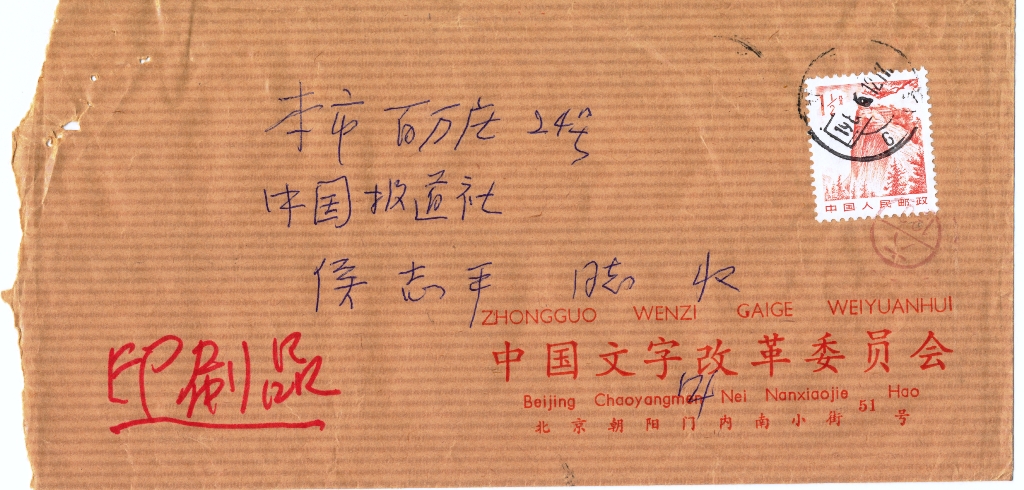 本市 百万庄 24号
中国报道社
侯志平 同志 收
印刷品
1½
中国人民邮政
ZHONGGUO WENZI GAIGE WEIYUANHUI
中国文字改革委员会
Beijing Chaoyangmen Nei Nanxiaojie 51 Hao
北京朝阳门内南小街 号